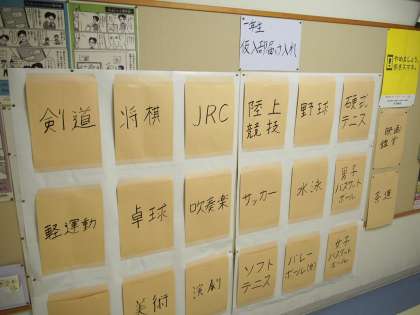 一年生
仮入部届け入れ
やめましょう、
剣道
将棋
JRC
陸上
競技
野球
硬式
テニス
映画
鑑賞
軽運動
卓球
吹奏楽
サッカー
水泳
男子
バスケット
ボール
茶道
美術
演劇
ソフト
テニス
バレー
ボール(女)
女子
バスケット
ボール